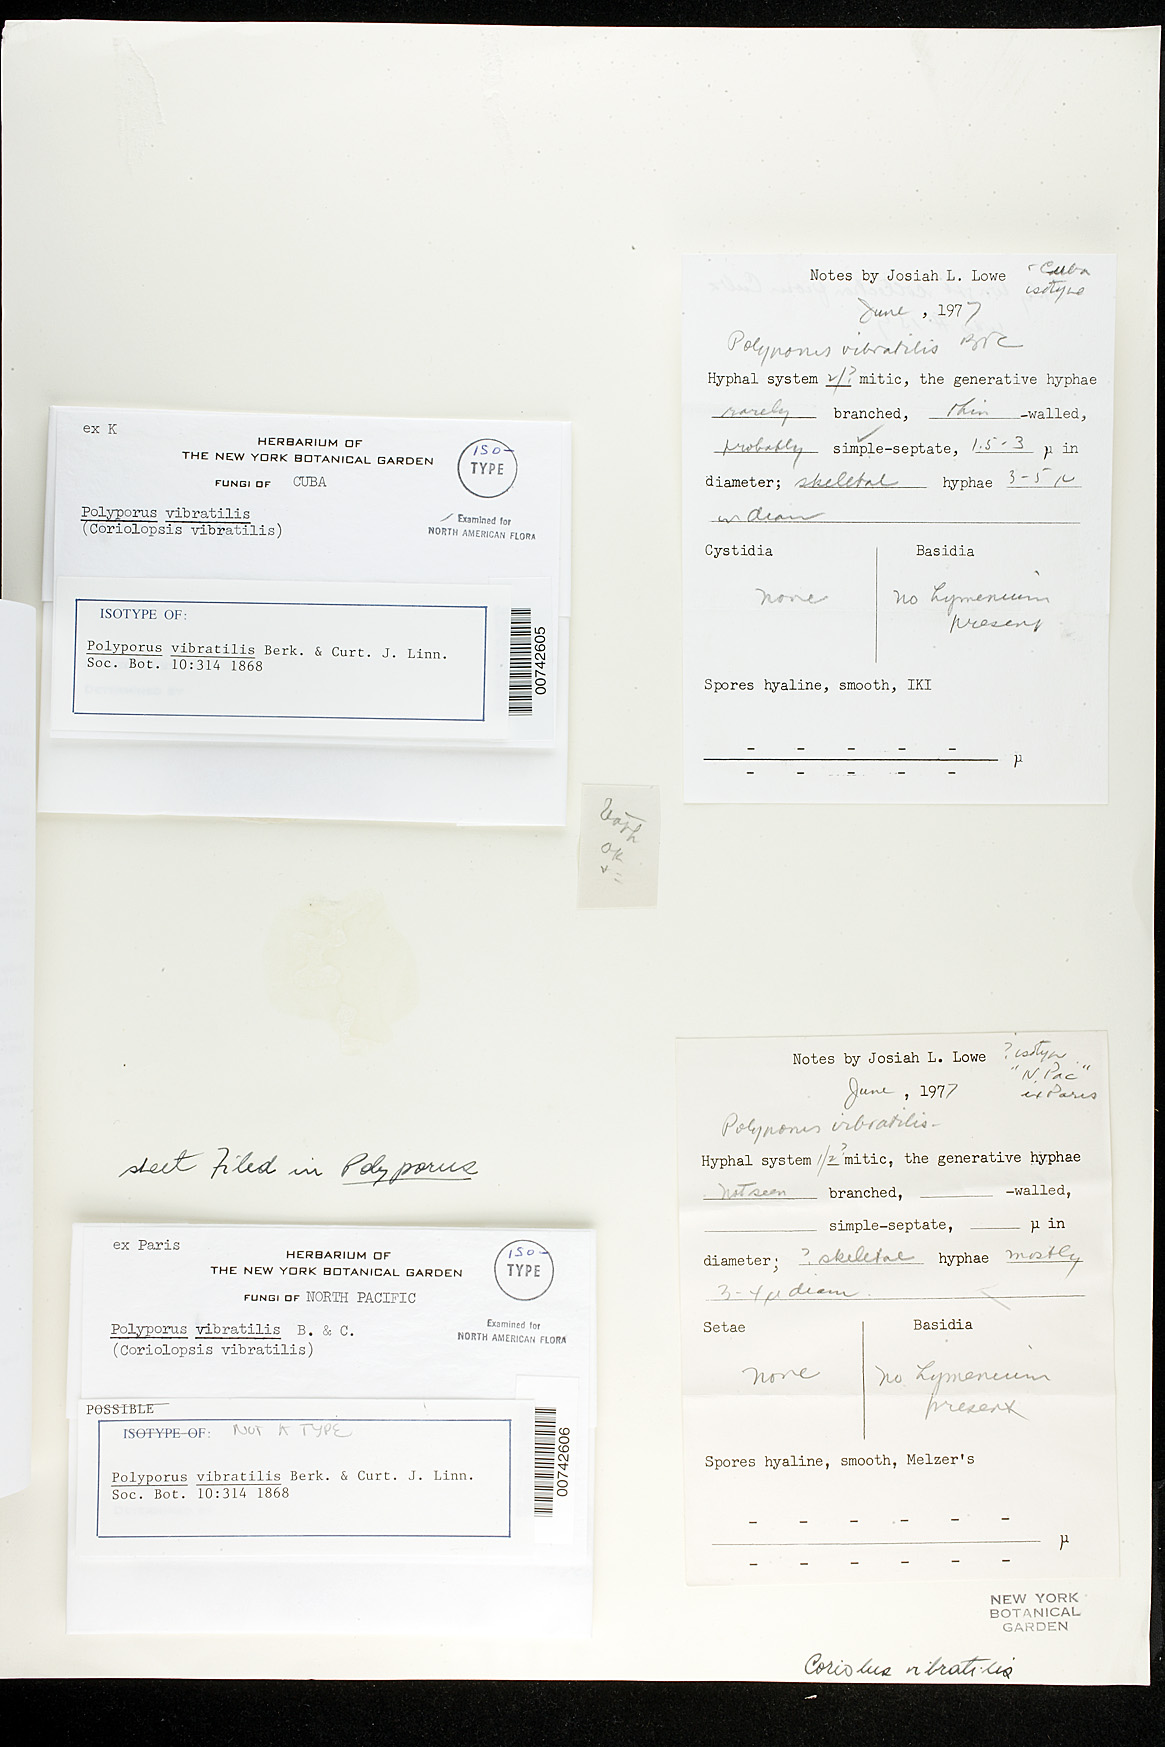 ex K
HERBARIUM OF
THE NEW YORK BOTANICAL GARDEN
FUNGI OF CUBA
ISO-
TYPE
Polyporus vibratilis
(Coriolopsis vibratilis)
Examined for
NORTH AMERICAN FLORA
ISOTYPE OF:
Polyporus vibratilis Berk. & Curt. J. Linn.
Soc. Bot. 10:314 1868
00742605
Notes by Josiah L. Lowe
Cuba
isotype
June, 1977
Polyporus vibratilis B&C
Hyphal system 2/? mitic, the generative hyphae
rarely branched, thin -walled,
probably simple-septate, 1.5-3 µ in
diameter; skeletal hyphae 3-5 µ
in diam
Cystidia
Basidia
none
no hymenium
present
Spores hyaline, smooth, IKI
- - - - -
µ
- - - - -
OK
sheet Filed in Polyporus
ex Paris
HERBARIUM OF
THE NEW YORK BOTANICAL GARDEN
FUNGI OF NORTH PACIFIC
ISO-
TYPE
Polyporus vibratilis B. & C.
(Coriolopsis vibratilis)
Examined for
NORTH AMERICAN FLORA
POSSIBLE
ISOTYPE OF: NOT A TYPE
Polyporus vibratilis Berk. & Curt. J. Linn.
Soc. Bot. 10:314 1868
00742606
Notes by Josiah L. Lowe
? isotype
"N. Pac"
ex Paris
June, 1977
Polyporus vibratilis-
Hyphal system 1/2? mitic, the generative hyphae
not seen branched, -walled,
simple-septate, µ in
diameter; ? skeletal hyphae mostly
3-4 µ diam.
Setae
Basidia
none
no hymenium
present
Spores hyaline, smooth, Melzer's
- - - - - -
µ
- - - - - -
NEW YORK
BOTANICAL
GARDEN
Coriolus vibratilis